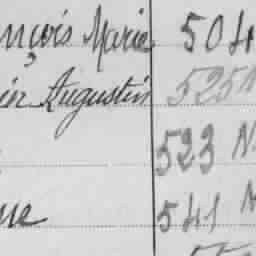 nçois Marie 504
in Augustin 525 N
523 N
ne 541 N